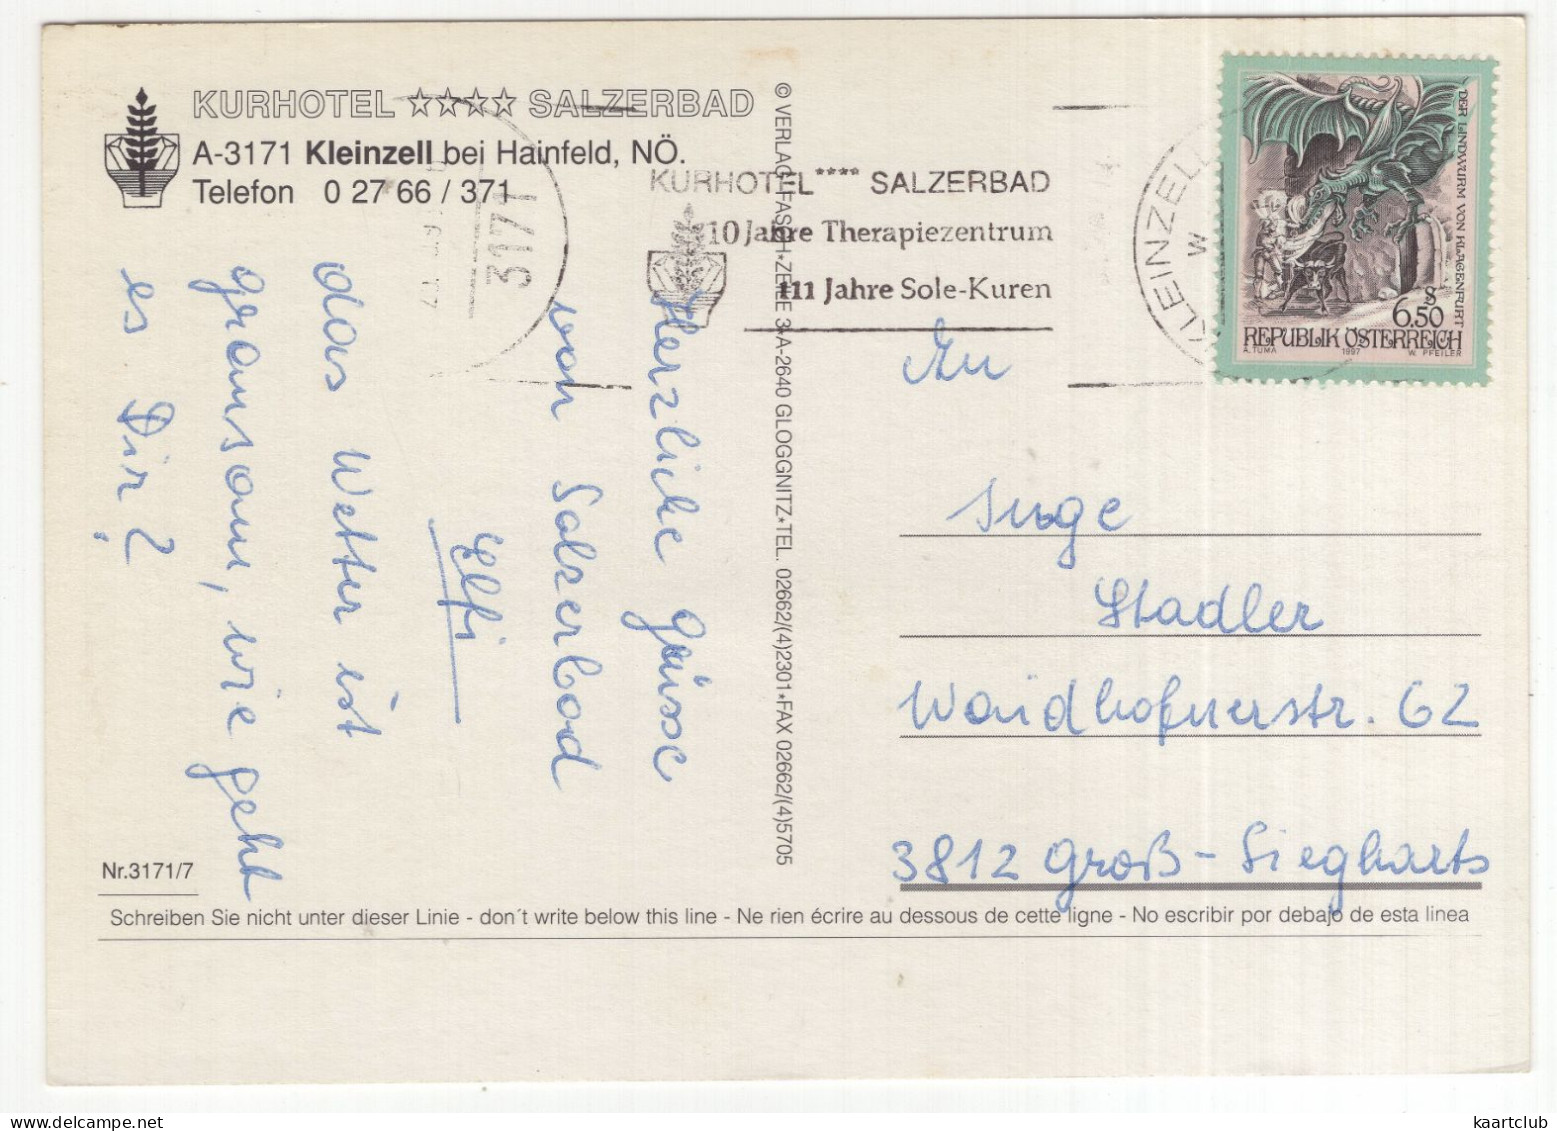 KURHOTEL ☆☆☆☆ SALZERBAD
A-3171 Kleinzell bei Hainfeld, NÖ.
Telefon 0 27 66 / 371
3171
KURHOTEL **** SALZERBAD
10 Jahre Therapiezentrum
111 Jahre Sole-Kuren
KLEINZELL
DER LINDWURM VON KLAGENFURT
S
6.50
REPUBLIK ÖSTERREICH
A. TUMA 1997 W. PFEILER
© VERLAG FASCH•ZEILE 3•A-2640 GLOGGNITZ•TEL. 02662/(4)2301•FAX 02662/(4)5705
Herzliche Grüsse
von Salzerbad
Elfi
das Wetter ist
grausam, wie geht
es Dir?
An
Inge
Stadler
Waidhofnerstr. 62
3812 Groß-Siegharts
Nr.3171/7
Schreiben Sie nicht unter dieser Linie - don´t write below this line - Ne rien écrire au dessous de cette ligne - No escribir por debajo de esta linea
kaartclub